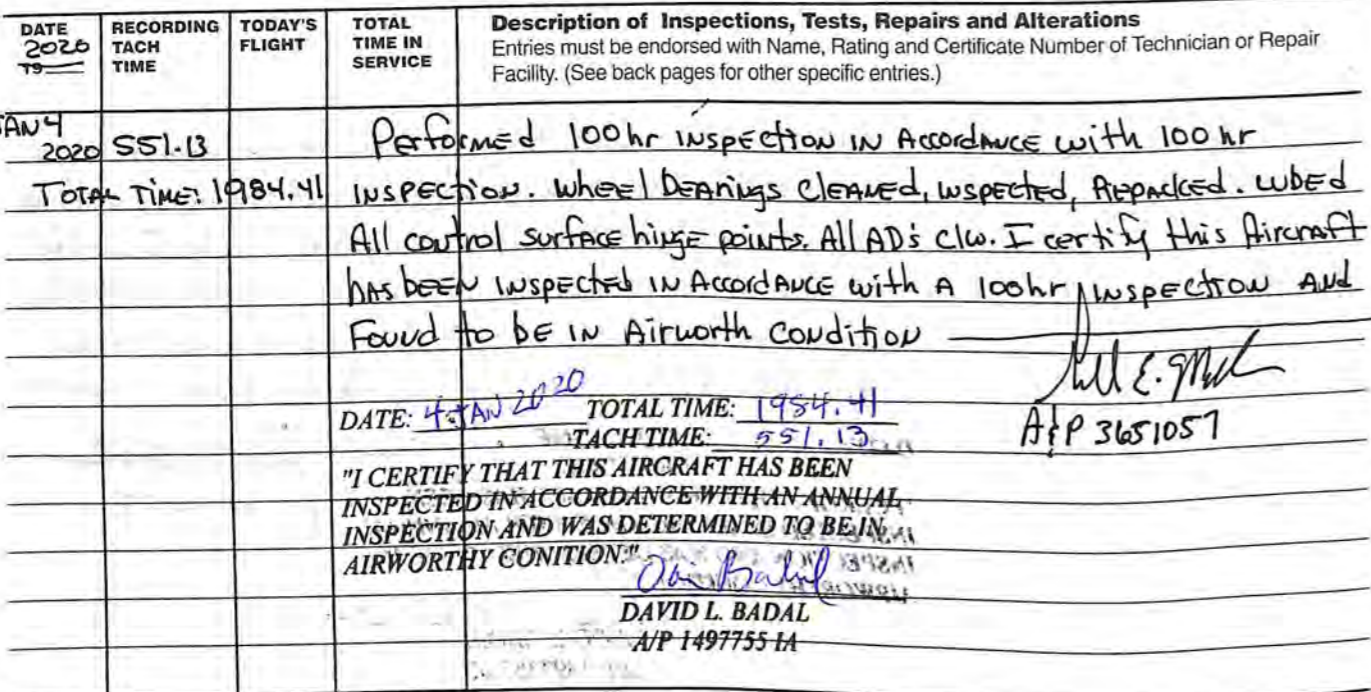 DATE RECORDING TODAY'S TOTAL Description of Inspections, Tests, Repairs and Alterations
2020 TACH FLIGHT TIME IN Entries must be endorsed with Name, Rating and Certificate Number of Technician or Repair
19 TIME SERVICE Facility. (See back pages for other specific entries.)
JAN 4
2020 551.13 Performed 100hr inspection in Accordance with 100 hr
Total Time: 1984.41 inspection. Wheel Bearings Cleaned, inspected, Repacked. Lubed
All control surface hinge points. All AD's c/w. I certify this Aircraft
has been inspected in Accordance with A 100hr inspection and
Found to be in Airworth Condition
DATE: 4 JAN 2020 TOTAL TIME: 1984.41
TACH TIME: 551.13
A&P 3651057
"I CERTIFY THAT THIS AIRCRAFT HAS BEEN
INSPECTED IN ACCORDANCE WITH AN ANNUAL
INSPECTION AND WAS DETERMINED TO BE IN
AIRWORTHY CONITION."
DAVID L. BADAL
A/P 1497755 IA